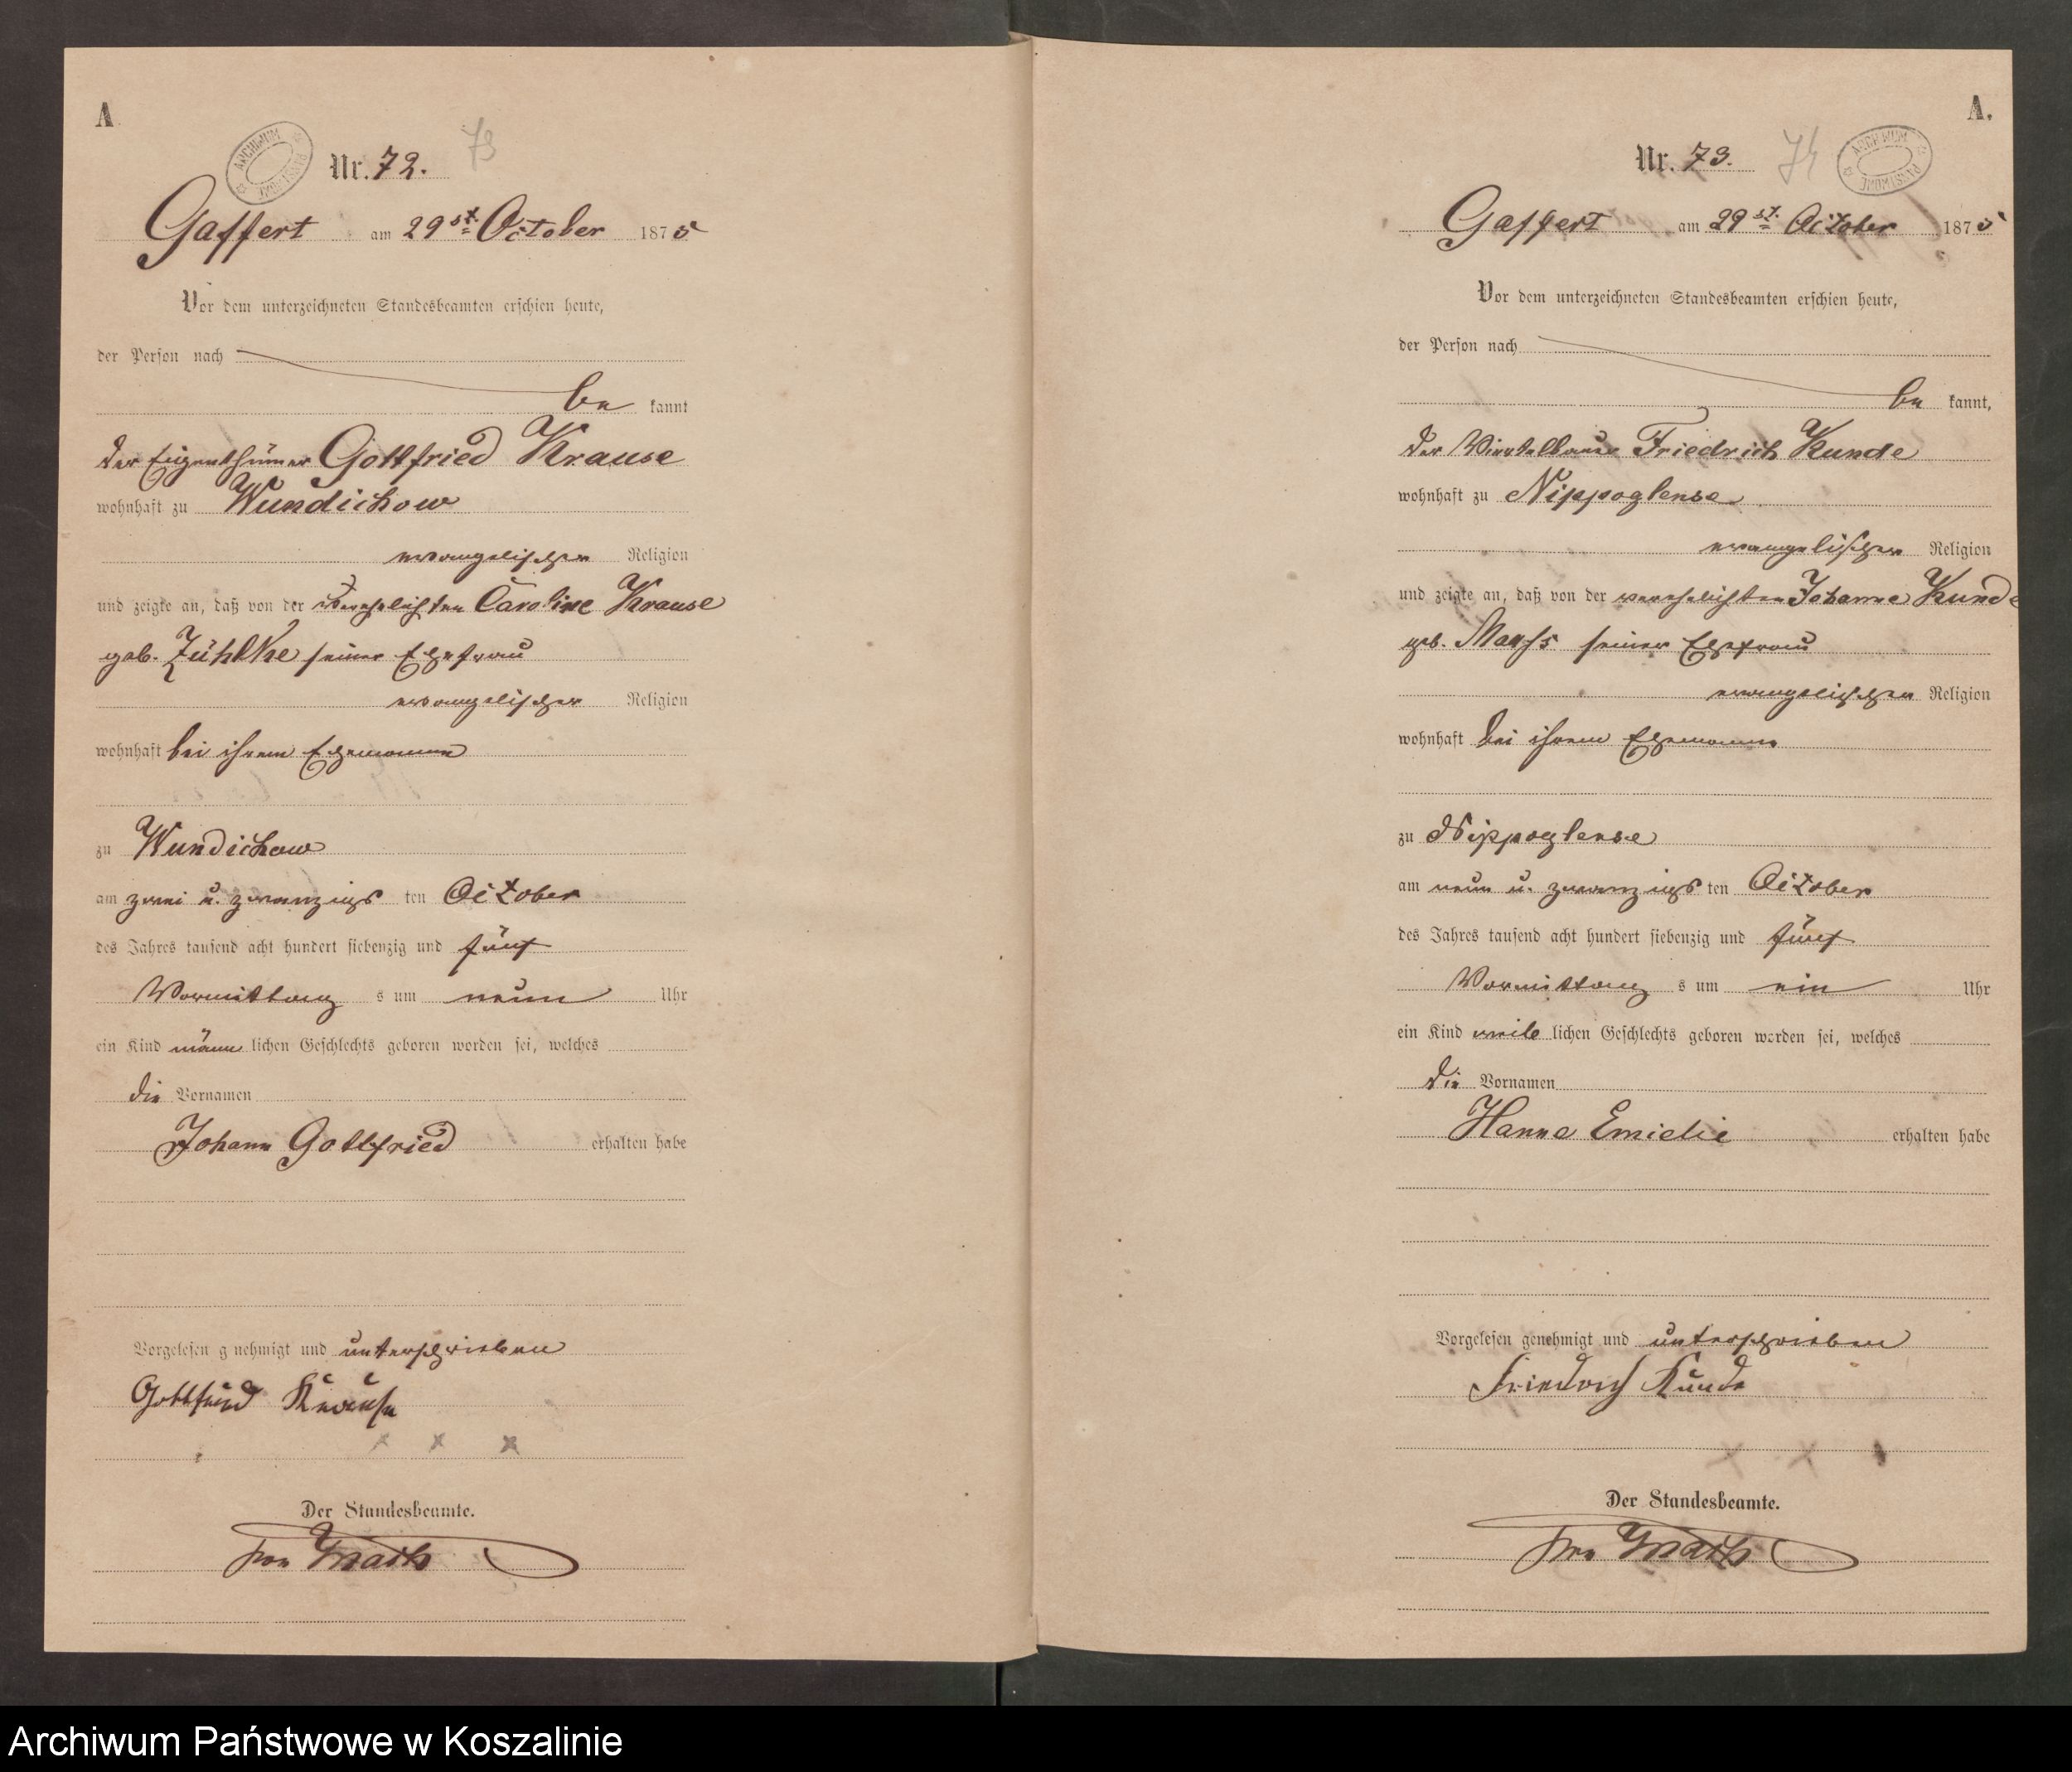 A
ARCHIWUM PAŃSTWOWE
Nr. 72. 73
Gaffert am 29st. October 1875
Vor dem unterzeichneten Standesbeamten erschien heute,
der Person nach
be kannt
der Eigenthümer Gottfried Krause
wohnhaft zu Wundichow
evangelischer Religion
und zeigte an, daß von der verehelichten Caroline Krause
geb. Zühlke seiner Ehefrau
evangelischer Religion
wohnhaft bei ihrem Ehemanne
zu Wundichow
am zwei u. zwanzigs ten October
des Jahres tausend acht hundert siebenzig und fünf
Vormittag s um neun Uhr
ein Kind männ lichen Geschlechts geboren worden sei, welches
die Vornamen
Johann Gottfried erhalten habe
Vorgelesen g nehmigt und unterschrieben
Gottfried Krause
x x x
Der Standesbeamte.
von
A.
Nr. 73. 74
ARCHIWUM PAŃSTWOWE
Gaffert am 29st. October 1875
Vor dem unterzeichneten Standesbeamten erschien heute,
der Person nach
be kannt,
der Viertelbauer Friedrich Kunde
wohnhaft zu Nippoglense
evangelischer Religion
und zeigte an, daß von der verehelichten Johanne Kunde
geb. seiner Ehefrau
evangelischer Religion
wohnhaft bei ihrem Ehemanne
zu Nippoglense
am neun u. zwanzigs ten October
des Jahres tausend acht hundert siebenzig und fünf
Vormittag s um ein Uhr
ein Kind weib lichen Geschlechts geboren worden sei, welches
die Vornamen
Hanne Emielie erhalten habe
Vorgelesen genehmigt und unterschrieben
Friedrich Kunde
x x
Der Standesbeamte.
von
Archiwum Państwowe w Koszalinie